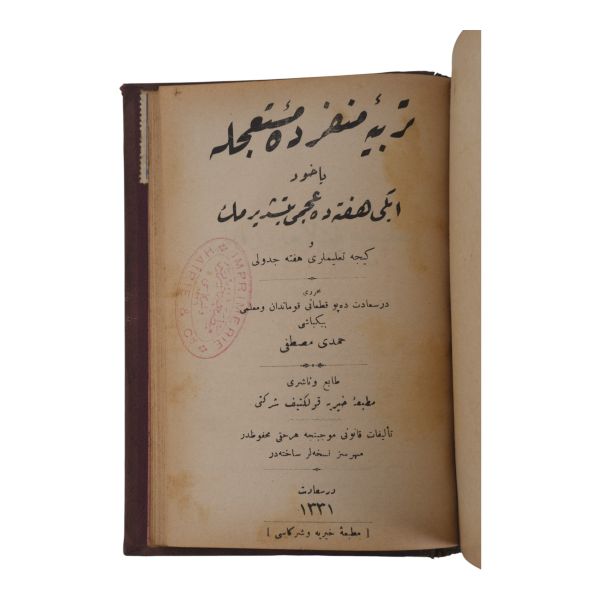 تربیهٔ منفردهٔ مستعجله
یاخود
ایکی هفته ده عجمی یتشدیرمك
و
کیجه تعلیملری هفته جدولی
محرری
درسعادت ده‌پو قطعاتی قوماندان و معلمی
بیکباشی
حمدی مصطفی
طابع و ناشری
مطبعهٔ خیریه قولکتیف شرکتی
تألیفات قانونی موجبنجه هر حقی محفوظدر
مهرسز نسخه‌لر ساخته‌در
درسعادت
١٣٣١
[ مطبعهٔ خیریه و شرکاسی ]
IMPRIMERIE
HAIRIÉ & Co